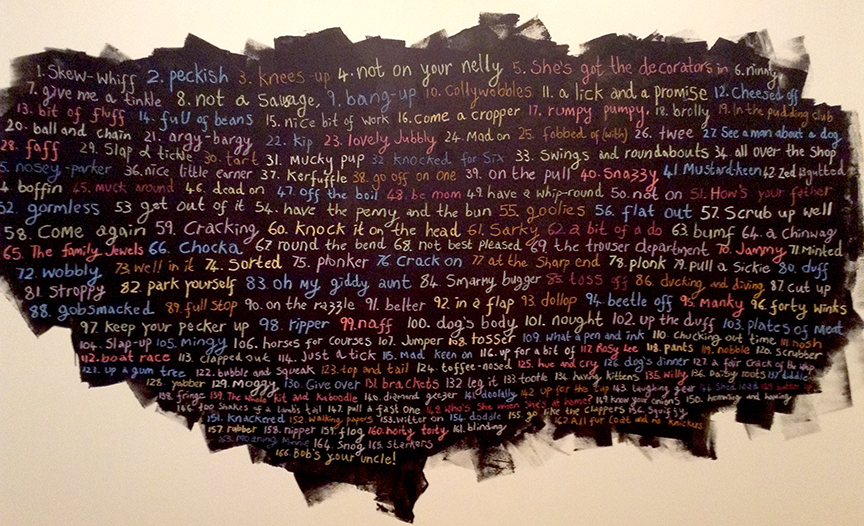 1. Skew-whiff 2. peckish 3. knees-up 4. not on your nelly 5. She's got the decorators in 6. ninny
7. give me a tinkle 8. not a sausage, 9. bang-up 10. Collywobbles 11. a lick and a promise 12. Cheesed off
13. bit of fluff 14. full of beans 15. nice bit of work 16. Come a cropper 17. rumpy pumpy. 18. brolly 19. In the pudding club
20. ball and chain 21. argy-bargy 22. kip 23. lovely Jubbly 24. Mad on 25. fobbed off (with) 26. twee 27. See a man about a dog
28. faff 29. Slap & tickle 30. tart 31. Mucky pup 32. knocked for Six 33. Swings and roundabouts 34. all over the Shop
5. nosey-parker 36. nice little earner 37. Kerfuffle 38. go off on one 39. on the pull 40. Snazzy 41. Mustard-keen 42. Zed
boffin 45. muck around 46. dead on 47. off the boil 48. be mom 49. have a whip-round 50. not on 51. How's your father
52. gormless 53 get out of it 54. have the penny and the bun 55. goolies 56. flat out 57. Scrub up well
58. Come again 59. Cracking 60. knock it on the head 61. Sarky 62. a bit of a do 63. bumf 64. a chinwag
65. The family Jewels 66. Chocka 67 round the bend 68. not best pleased 69 the trouser department 70. Jammy 71. Minted
72. wobbly 73 well in it 74. Sorted 75. plonker 76 Crack on 77 at the Sharp end 78. plonk 79. pull a Sickie 80. duff
81. Stroppy 82. park yourself 83. oh my giddy aunt 84. Smarmy bugger 85. toss off 86. ducking and diving 87. cut up
88. gobsmacked 89. full Stop 90. on the razzle 91. belter 92. in a flap 93. dollop 94. beetle off 95. Manky 96. forty winks
97. keep your pecker up 98. ripper 99. naff 100. dog's body 101. nought 102. up the duff 103. plates of Meat
104. Slap-up 105. Mingy 106. horses for courses 107. Jumper 108. tosser 109. What a pen and ink 110. Chucking out time 111. nosh
112. boat race 113. clapped out 114. Just a tick 115. Mad keen on 116. up for a bit of 117 Rosy lee 118. pants 119. nobble 120. scrubber
121. up a gum tree 122. bubble and squeak 123. top and tail 124. toffee-nosed 125. hue and cry 126. dog's dinner 127. a fair Crack of the whip
128. yabber 129. Moggy 130. Give over 131. brackets 132 leg it 133. tootle 134. having kittens 135. Willy 136. Daisy roots
138. fringe 139. The whole Kit and Kaboodle 140. diamond geezer 141. doolally 142 up for the cup 143 laughing gear
146. two Shakes of a lambs tail 147. pull a fast one 148. Who's She when she's at home? 149. know your onions 150. hemming and hawing
151. knackered 152. walking papers 153. witter on 154. doddle 155. go like the clappers 156. Squiffy
157 rubber 158. nipper 159. flog 160. hoity toity 161. blinding 162. All fur coat and no knickers
163. Moaning Minnie 164. Snog 165. Starkers
166. Bob's your uncle!